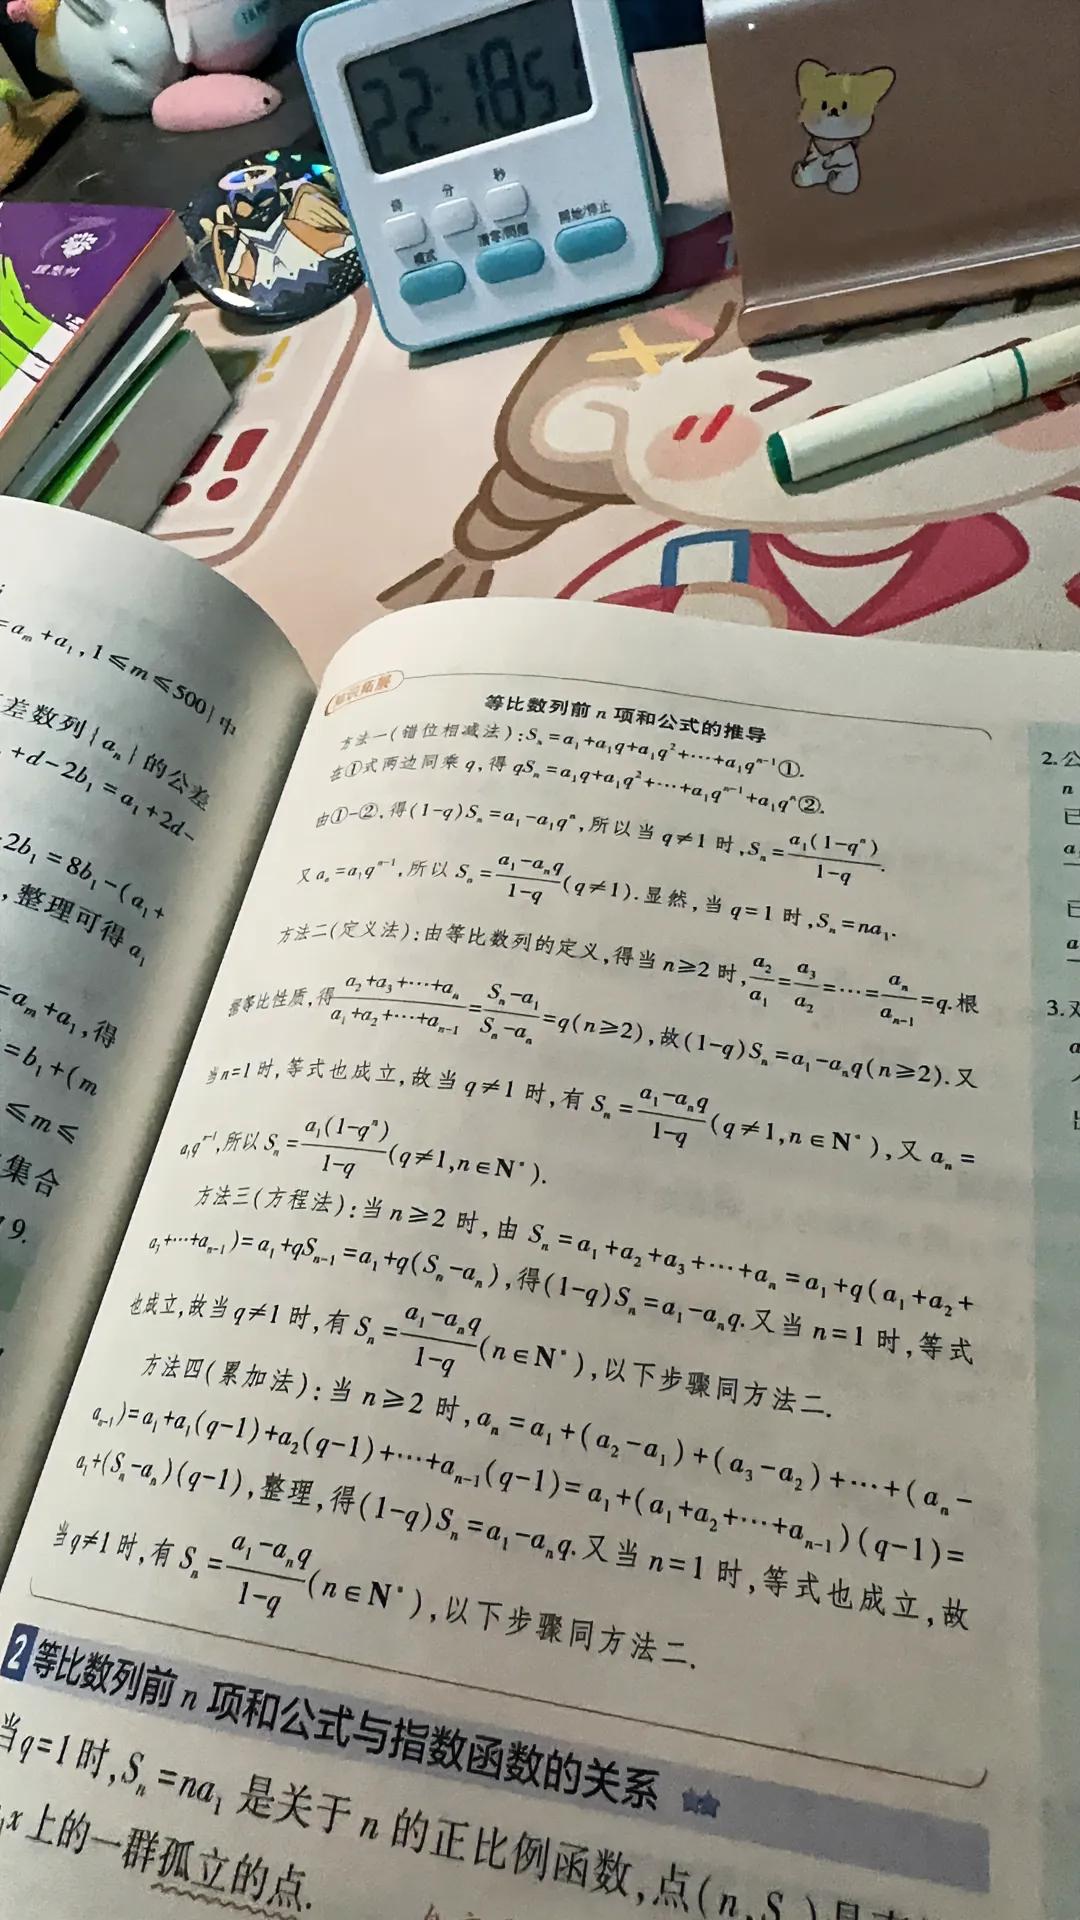 22:18 51
時
分
秒
模式
清零/鬧鐘
開始/停止
理想树
=aₘ+a₁,1≤m≤500}中
差数列{aₙ}的公差
+d-2b₁=a₁+2d-
2b₁=8b₁-(a₁+
,整理可得a₁
=aₘ+a₁,得
=b₁+(m
≤m≤
集合
9.
知识拓展
等比数列前n项和公式的推导
方法一(错位相减法):Sₙ=a₁+a₁q+a₁q²+…+a₁qⁿ⁻¹①.
在①式两边同乘q,得qSₙ=a₁q+a₁q²+…+a₁qⁿ⁻¹+a₁qⁿ②.
由①-②,得(1-q)Sₙ=a₁-a₁qⁿ,所以当q≠1时,Sₙ=a₁(1-qⁿ)/(1-q).
又aₙ=a₁qⁿ⁻¹,所以Sₙ=(a₁-aₙq)/(1-q)(q≠1).显然,当q=1时,Sₙ=na₁.
方法二(定义法):由等比数列的定义,得当n≥2时,a₂/a₁=a₃/a₂=…=aₙ/aₙ₋₁=q.根
据等比性质,得(a₂+a₃+…+aₙ)/(a₁+a₂+…+aₙ₋₁)=(Sₙ-a₁)/(Sₙ-aₙ)=q(n≥2),故(1-q)Sₙ=a₁-aₙq(n≥2).又
当n=1时,等式也成立,故当q≠1时,有Sₙ=(a₁-aₙq)/(1-q)(q≠1,n∈N*),又aₙ=
a₁qⁿ⁻¹,所以Sₙ=a₁(1-qⁿ)/(1-q)(q≠1,n∈N*).
方法三(方程法):当n≥2时,由Sₙ=a₁+a₂+a₃+…+aₙ=a₁+q(a₁+a₂+
a₃+…+aₙ₋₁)=a₁+qSₙ₋₁=a₁+q(Sₙ-aₙ),得(1-q)Sₙ=a₁-aₙq.又当n=1时,等式
也成立,故当q≠1时,有Sₙ=(a₁-aₙq)/(1-q)(n∈N*),以下步骤同方法二.
方法四(累加法):当n≥2时,aₙ=a₁+(a₂-a₁)+(a₃-a₂)+…+(aₙ-
aₙ₋₁)=a₁+a₁(q-1)+a₂(q-1)+…+aₙ₋₁(q-1)=a₁+(a₁+a₂+…+aₙ₋₁)(q-1)=
a₁+(Sₙ-aₙ)(q-1),整理,得(1-q)Sₙ=a₁-aₙq.又当n=1时,等式也成立,故
当q≠1时,有Sₙ=(a₁-aₙq)/(1-q)(n∈N*),以下步骤同方法二.
2 等比数列前n项和公式与指数函数的关系
当q=1时,Sₙ=na₁是关于n的正比例函数,点(n,Sₙ)是
x上的一群孤立的点.
2.公
n
已
a
已
a
3.对